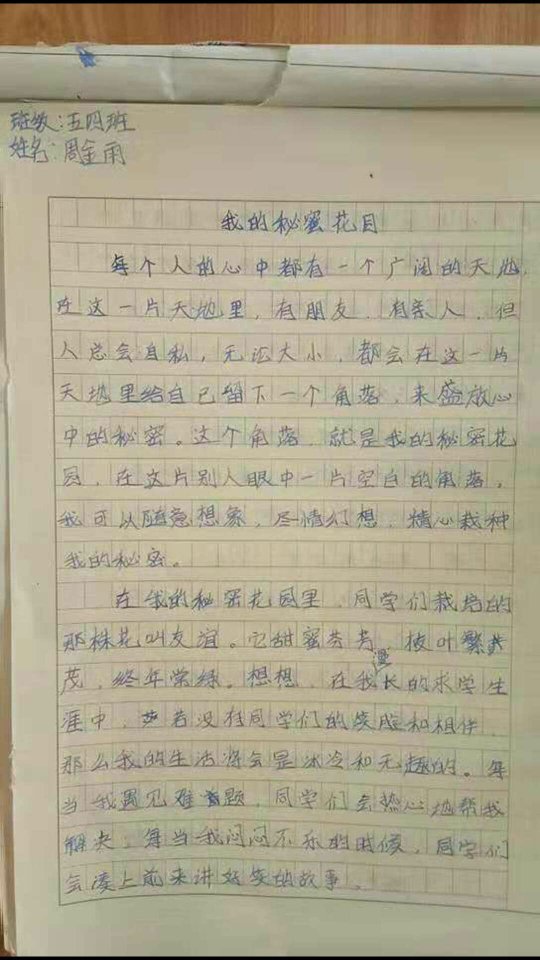 班级:五四班
姓名:周金雨
我的秘蜜花目
每个人的心中都有一个广阔的天地,
在这一片天地里,有朋友,有亲人,但
人总会自私,无论大小,都会在这一片
天地里给自己留下一个角落,来盛放心
中的秘密。这个角落,就是我的秘密花
园,在这片别人眼中一片空白的角落,
我可以随意想象,尽情幻想,精心栽种
我的秘密。
在我的秘密花园里,同学们栽培的
那株花叫友谊。它甜蜜芬芳,枝叶繁
茂,终年常绿。想想,在我漫长的求学生
涯中,若没有同学们的笑脸和相伴,
那么我的生活将会是冰冷和无趣的。每
当我遇见难题,同学们会热心地帮我
解决,每当我闷闷不乐的时候,同学们
会凑上前来讲好笑的故事。